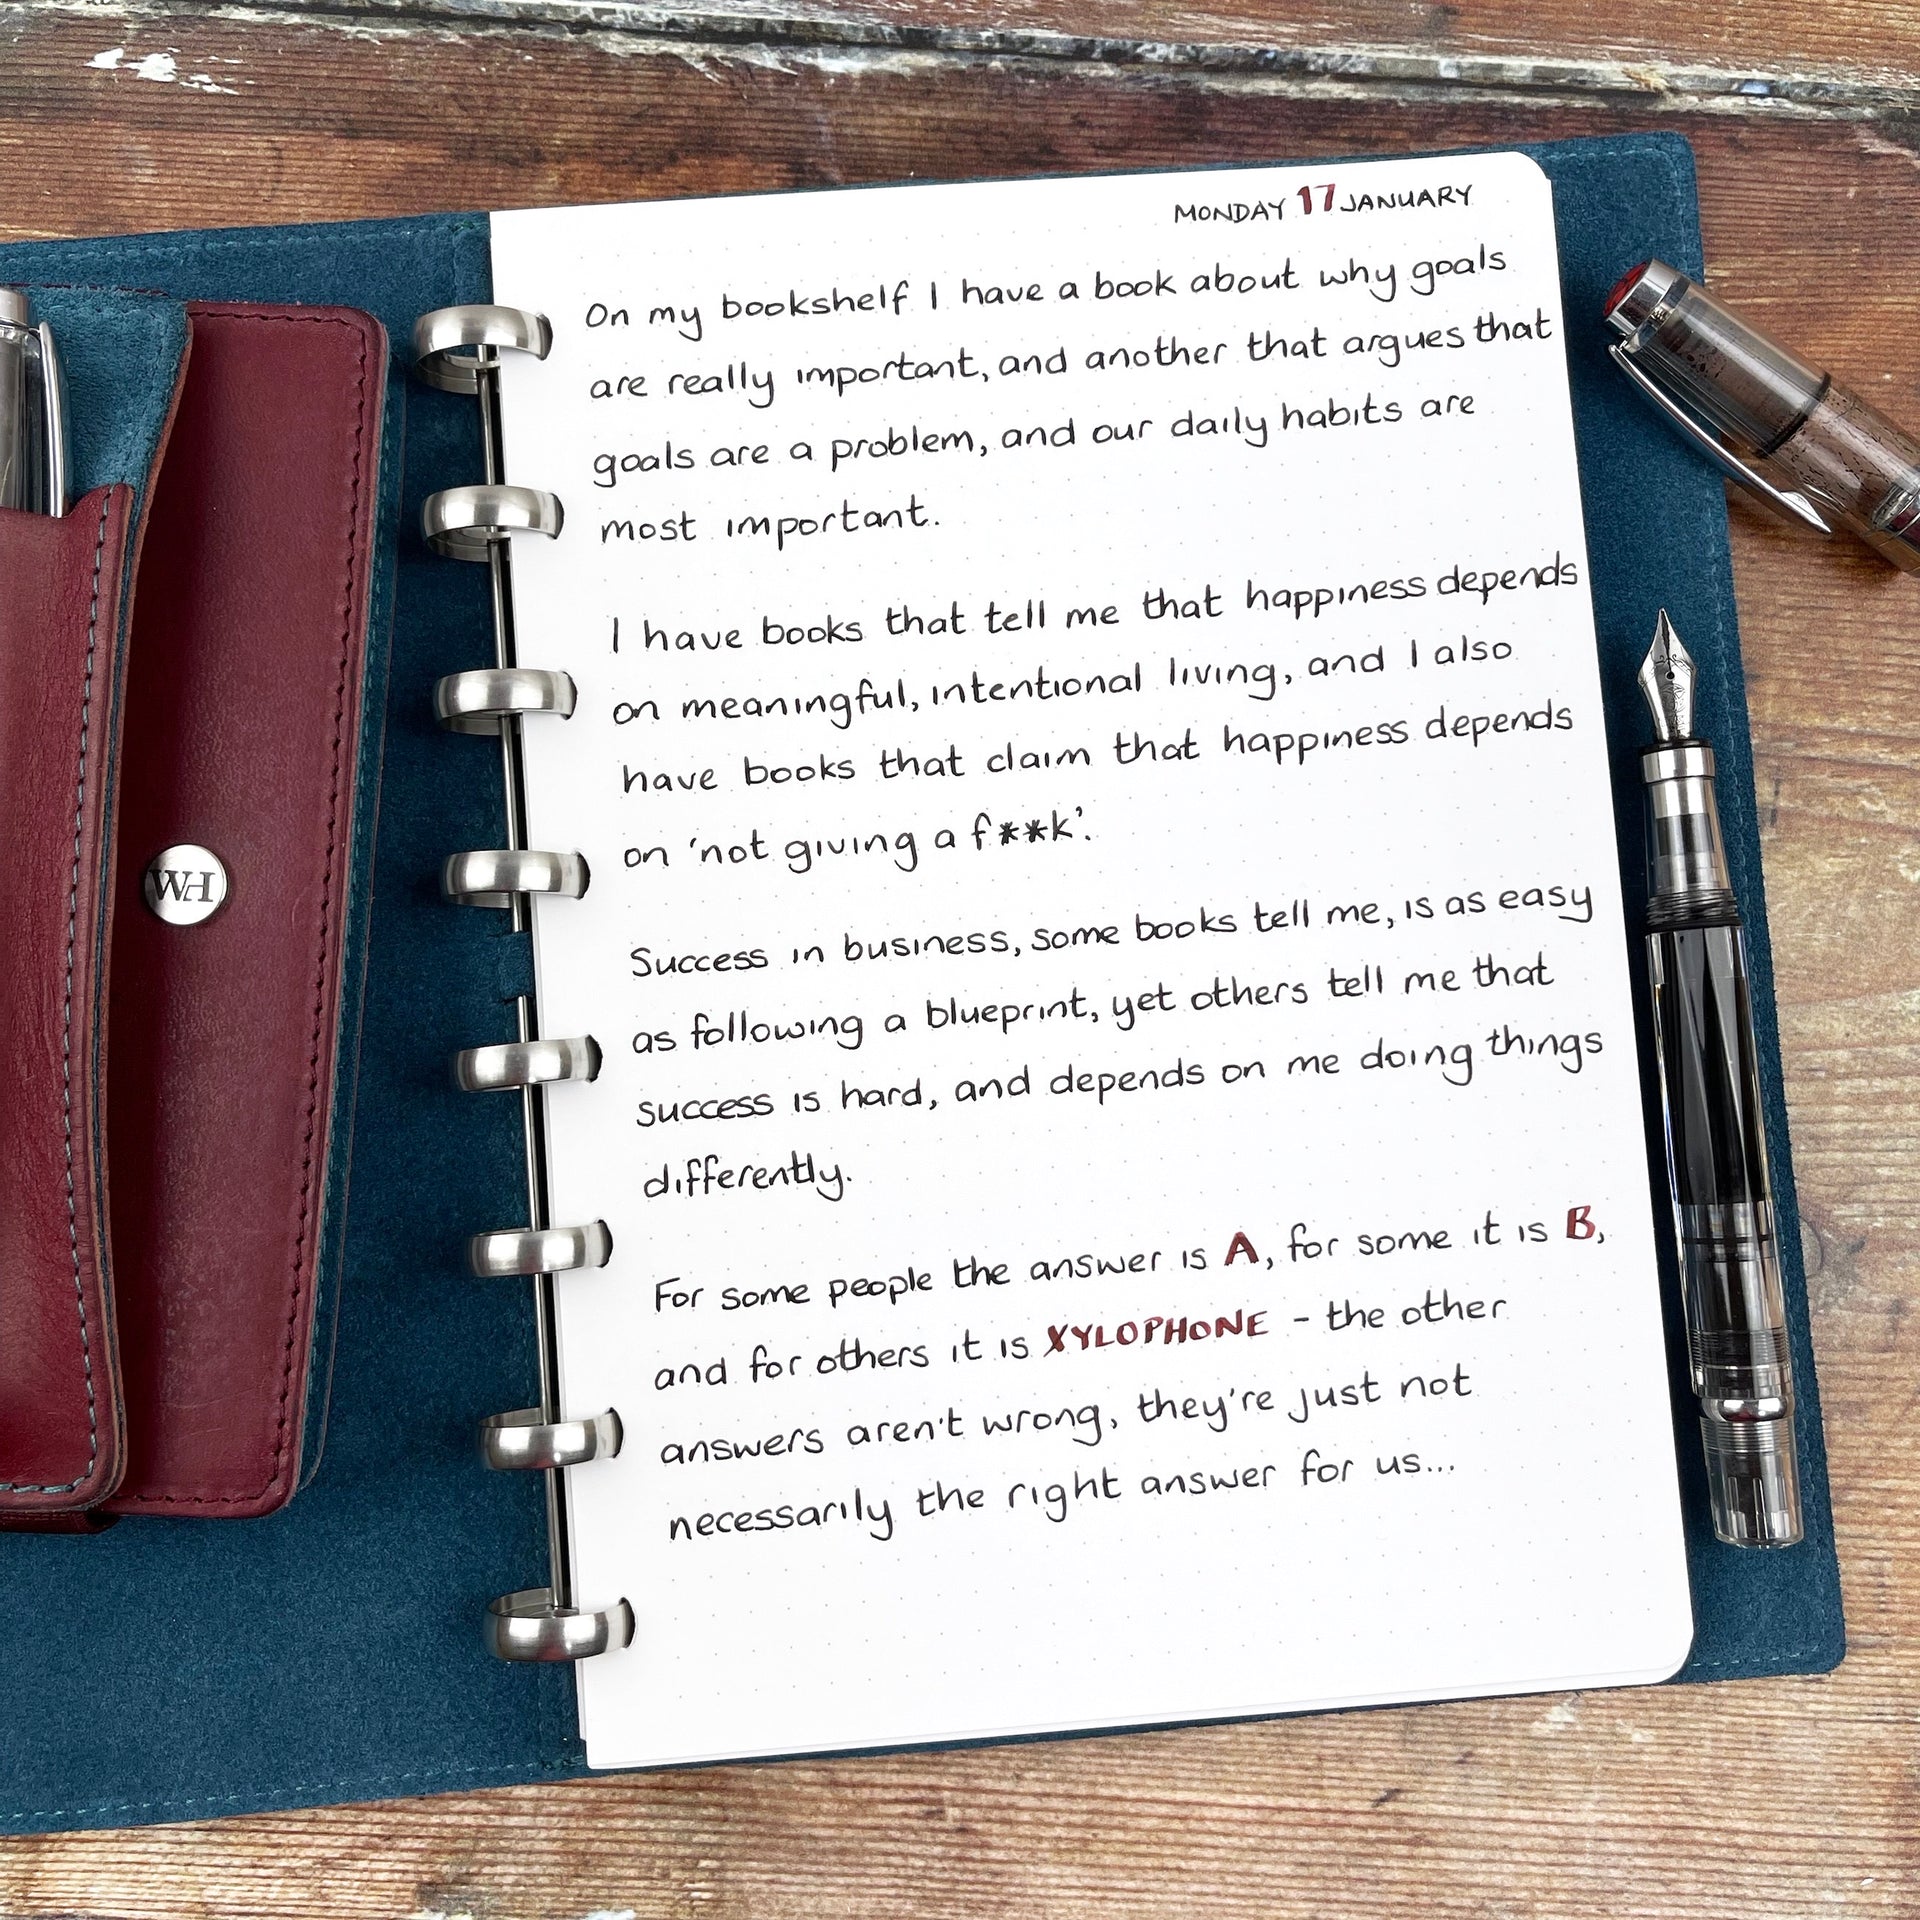 MONDAY 17 JANUARY
On my bookshelf I have a book about why goals
are really important, and another that argues that
goals are a problem, and our daily habits are
most important.
I have books that tell me that happiness depends
on meaningful, intentional living, and I also
have books that claim that happiness depends
on 'not giving a f**k'.
Success in business, some books tell me, is as easy
as following a blueprint, yet others tell me that
success is hard, and depends on me doing things
differently.
For some people the answer is A, for some it is B,
and for others it is XYLOPHONE - the other
answers aren't wrong, they're just not
necessarily the right answer for us...
WH